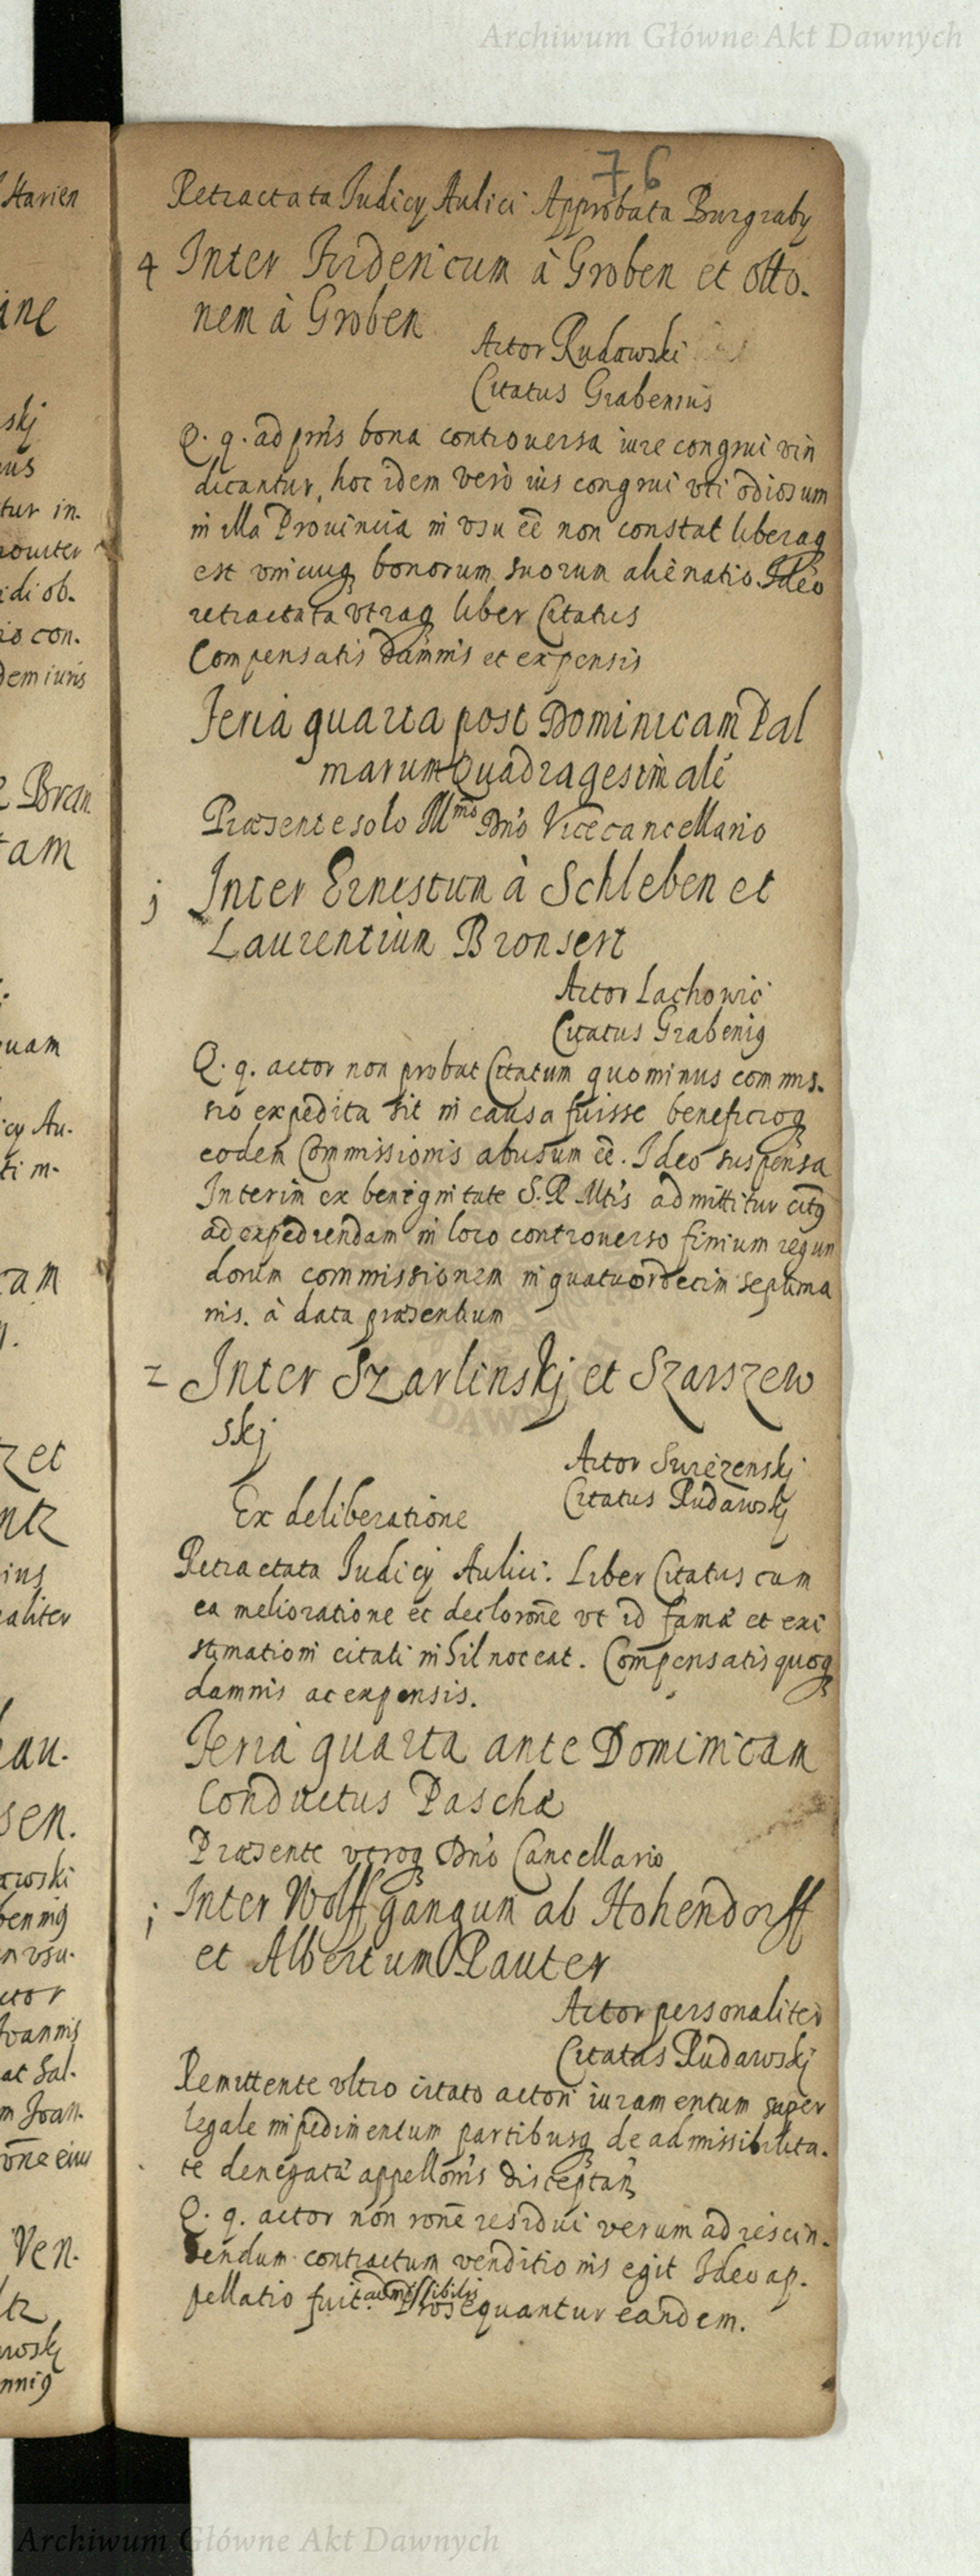 Archiwum Główne Akt Dawnych
76
Retractata Judicy Aulici Approbata Burgraby
4 Inter Fridericum à Groben et Otto-
nem à Groben
Actor Rudowski
Citatus Grabenius
Q. q. ad pñs bona controuersa iure congrui vin
dicantur, hoc idem verò ius congrui vti odiosum
in illa Prouincia in vsu eẽ non constat liberaq
est vnicuiq bonorum suorum alienatio. Ideo
retractata vtraq liber Citatus
Compensatis damnis et expensis
Feria quarta post Dominicam Pal
marum Quadragesimale
Præsente solo Illmo Dño Vicecancellario
j Inter Ernestum à Schleben et
Laurentium Bronsert
Actor Lachowic
Citatus Grabenig
Q. q. actor non probat Citatum quominus commis-
sio expedita sit in causa fuisse beneficioq
eodem Commissionis abusum eẽ. Ideo suspensa
Interim ex benignitate S. R. Mtis admittitur citq
ad expediendam in loco controuerso finium regun
dorum commissionem in quatuordecim septima
nis. à data præsentium
2 Inter Szarlinskj et Szarszew
skj
Actor
Citatus Rudawskj
Ex deliberatione
Retractata Judicij Aulici. Liber Citatus cum
ea melioratione et declarõne vt id famæ et exi
stimationi citati nihil noceat. Compensatis quoq
damnis ac expensis.
Feria quarta ante Dominicam
Conductus Paschæ
Præsente vtroq Dño Cancellario
j Inter Wolffgangum ab Hohendorff
et Albertum Rauter
Actor personaliter
Citatus Rudawskj
Remittente vltro citato actori iuramentum super
legale impedimentum partibusq de admissibilita-
te denegatæ appellõnis disceptan
Q. q. actor non rõne residui verum ad rescin-
dendum contractum venditionis egit Ideo ap-
pellatio fuit admissibilis Prosequantur eandem.
Archiwum Główne Akt Dawnych